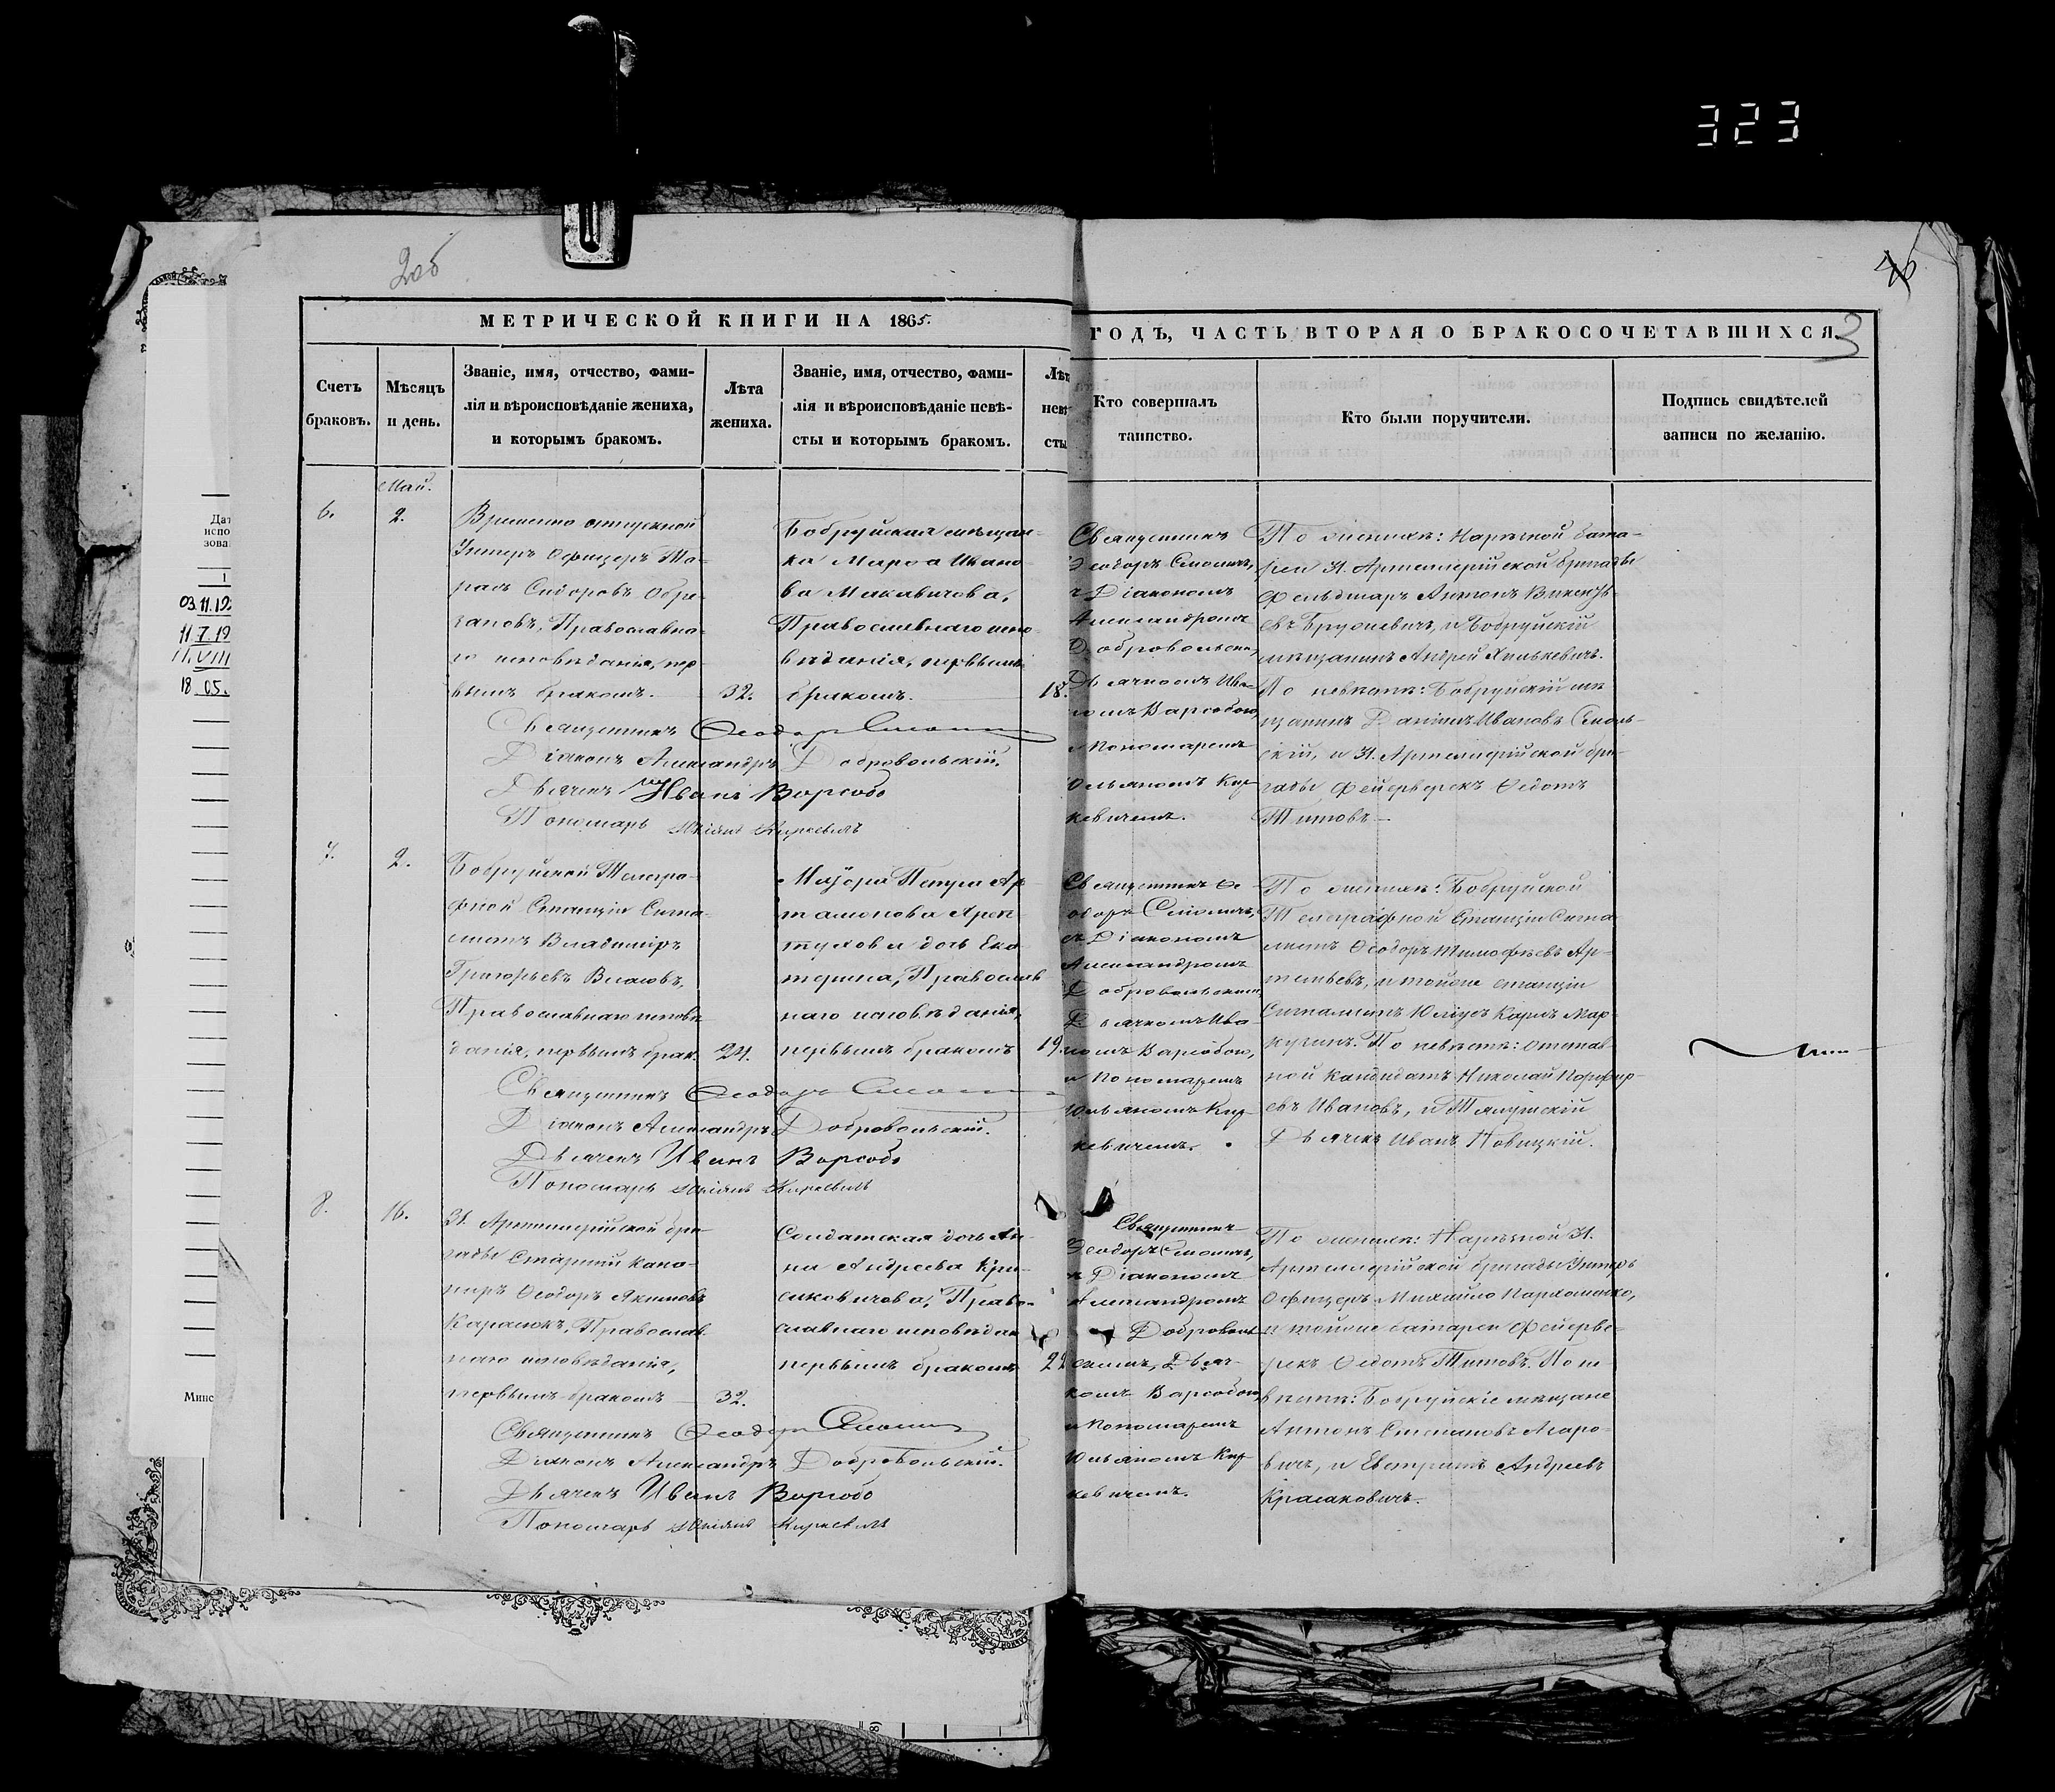 323
2об
МЕТРИЧЕСКОЙ КНИГИ НА 1865.
ГОДЪ, ЧАСТЬ ВТОРАЯ О БРАКОСОЧЕТАВШИХСЯ.
3
Счетъ
браковъ.
Мѣсяцъ
и день.
Званіе, имя, отчество, фами-
лія и вѣроисповѣданіе жениха,
и которымъ бракомъ.
Лѣта
жениха.
Званіе, имя, отчество, фами-
лія и вѣроисповѣданіе невѣ-
сты и которымъ бракомъ.
Лѣт
невѣ
сты
Кто совершалъ
таинство.
Кто были поручители.
Подпись свидѣтелей
записи по желанію.
Май.
6.
2.
Временно отпускной
Унтеръ Офицеръ Та-
расъ Сидоровъ
Православна-
го исповѣданія, пер-
вымъ бракомъ.
32.
Бобруйская мѣщан-
ка Марѳа Ивано-
ва Макавичова,
Православнаго испо-
вѣданія, первымъ
бракомъ.
18.
Священникъ
Ѳеодоръ Смоличъ,
съ Діакономъ
Александромъ
Добровольски
Дьячкомъ Ива-
номъ Варсобою,
и Пономаремъ
Юльяномъ Кир-
кевичемъ.
По женихѣ: Нарѣзной бата-
реи 31. Артиллерійской бригады
Фельдшеръ Антонъ Викентъ-
евъ и Бобруйскій
мѣщанинъ Андрей Хилькевичъ.
По невѣстѣ: Бобруйскій мѣ
щанинъ Даніилъ Ивановъ
скій, и 31. Артиллерійской бри-
гады Фейерверкъ Ѳедотъ
Титовъ.
Священникъ Ѳеодоръ Смоличъ
Діаконъ Александръ Добровольскій.
Дьячекъ Иванъ Варсоба
Пономарь Юліанъ Киркевичъ
7.
2.
Бобруйской Телегра-
фной Станціи Сигна-
листъ Владиміръ
Григорьевъ Власовъ,
Православнаго исповѣ
данія, первымъ брак.
24.
Маіора Петра Ар-
тамонова Ареп-
тухова дочь Ека-
терина, Православ
наго исповѣданія,
первымъ бракомъ
19.
Священникъ Ѳе-
одоръ Смоличъ,
съ Діакономъ
Александромъ
Добровольскимъ,
Дьячкомъ Ива-
номъ Варсобою,
и Пономаремъ
Юльяномъ Кир-
кевичемъ.
По женихѣ: Бобруйской
Телеграфной Станціи Сигна
листъ Ѳеодоръ Тимофѣевъ Ар-
темьевъ, и тойже станціи
Сигналистъ Юліусъ Карлъ Мар-
По невѣстѣ: Отстав-
ной Кандидатъ Николай Порфир-
евъ Ивановъ, и
Дьячекъ Иванъ Новицкій.
Священникъ Ѳеодоръ Смоличъ
Діаконъ Александръ Добровольскій.
Дьячекъ Иванъ Варсоба
Пономарь Юліанъ Киркевичъ
8.
16.
31. Артиллерійской бри-
гады Старшій Кано-
ниръ Ѳеодоръ Якимовъ
Карасюкъ, Православ
наго исповѣданія,
первымъ бракомъ
32.
Солдатская дочь Ан-
на Андреева Кра-
сиковичова, Право-
славнаго исповѣдан
первымъ бракомъ
22
Священникъ
Ѳеодоръ Смоличъ,
съ Діакономъ
Александромъ
Доброволь-
скимъ, Дьяч-
комъ Варсобою,
и Пономаремъ
Юльяномъ Кир-
кевичемъ.
По женихѣ: Нарѣзной 31.
Артиллерійской бригады Унтеръ
Офицеръ Михайло Пархоменко,
и тойже батареи Фейерве-
ркъ Ѳедотъ Титовъ. По не
вѣстѣ: Бобруйскіе мѣщане
Антонъ Степановъ Азаро-
вичъ, и Евстратъ Андреевъ
Красаковичъ.
Священникъ Ѳеодоръ Смоличъ
Діаконъ Александръ Добровольскій.
Дьячекъ Иванъ Варсоба
Пономарь Юліанъ Киркевичъ
Дат
испо
зова
1
03.11.19
11.V.19
11.VIII
18.05.
Минс